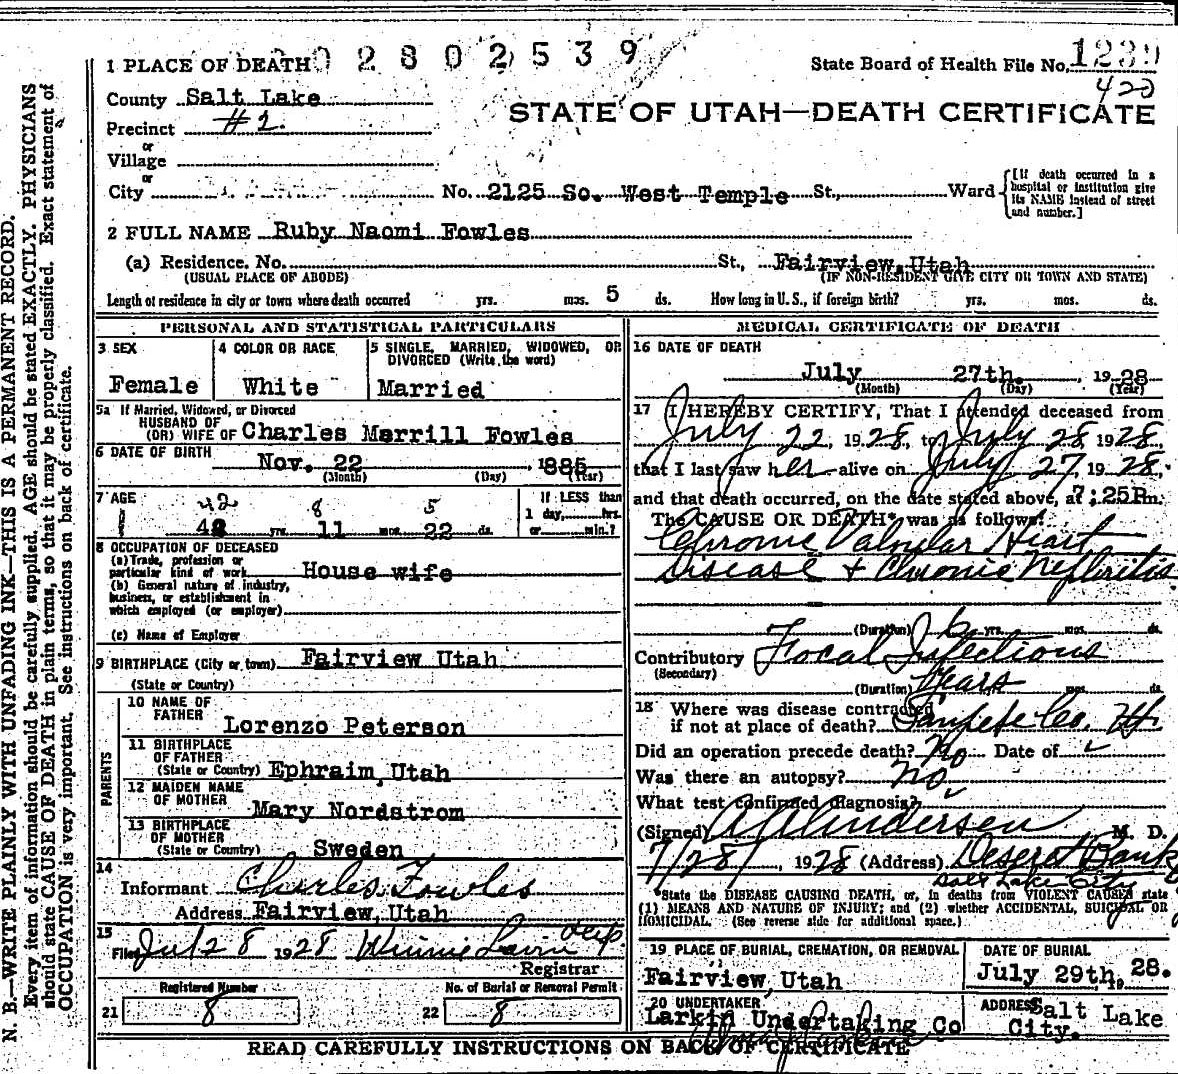 N. B.—WRITE PLAINLY WITH UNFADING INK—THIS IS A PERMANENT RECORD.
Every item of information should be carefully supplied. AGE should be stated EXACTLY. PHYSICIANS
should state CAUSE OF DEATH in plain terms, so that it may be properly classified. Exact statement of
OCCUPATION is very important. See instructions on back of certificate.
1 PLACE OF DEATH 0 2 8 0 2 5 3 9
State Board of Health File No. 1239
420
County Salt Lake
STATE OF UTAH—DEATH CERTIFICATE
Precinct #2.
or
Village
or
City No. 2125 So. West Temple St., Ward
[If death occurred in a
hospital or institution give
its NAME instead of street
and number.]
2 FULL NAME Ruby Naomi Fowles
(a) Residence. No. St., Fairview, Utah
(USUAL PLACE OF ABODE) (IF NON-RESIDENT GIVE CITY OR TOWN AND STATE)
Length of residence in city or town where death occurred yrs. mos. 5 ds. How long in U. S., if foreign birth? yrs. mos. ds.
PERSONAL AND STATISTICAL PARTICULARS
3 SEX
Female
4 COLOR OR RACE
White
5 SINGLE, MARRIED, WIDOWED, OR
DIVORCED (Write the word)
Married
5a If Married, Widowed, or Divorced
HUSBAND OF
(OR) WIFE OF Charles Merrill Fowles
6 DATE OF BIRTH Nov. 22, 1885
(Month) (Day) (Year)
7 AGE 42 8 5
42 yrs. 11 mos. 22 ds.
If LESS than
1 day, hrs.
or min.?
8 OCCUPATION OF DECEASED
(a) Trade, profession or
particular kind of work House wife
(b) General nature of industry,
business, or establishment in
which employed (or employer)
(c) Name of Employer
9 BIRTHPLACE (City or town) Fairview Utah
(State or Country)
PARENTS
10 NAME OF
FATHER Lorenzo Peterson
11 BIRTHPLACE
OF FATHER
(State or Country) Ephraim, Utah
12 MAIDEN NAME
OF MOTHER Mary Nordstrom
13 BIRTHPLACE
OF MOTHER
(State or Country) Sweden
14
Informant Charles Fowles
Address Fairview, Utah
15
Filed Jul 28 1928 Winnie Dep.
Registrar
Registered Number
21 8
No. of Burial or Removal Permit
22 8
MEDICAL CERTIFICATE OF DEATH
16 DATE OF DEATH
July 27th. , 1928
(Month) (Day) (Year)
17 I HEREBY CERTIFY, That I attended deceased from
July 22, 1928, to July 28 1928,
that I last saw her alive on July 27, 1928,
and that death occurred, on the date stated above, at 7:25P m.
The CAUSE OR DEATH* was as follows:
Chronic Valvular Heart
Disease + Chronic Nephritis
(Duration) 6 yrs. mos. ds.
Contributory Focal Infections
(Secondary)
(Duration) Years mos. ds.
18 Where was disease contracted
if not at place of death? Sanpete Co. Ut.
Did an operation precede death? No Date of
Was there an autopsy? no
What test confirmed diagnosis?
(Signed) Andersen M. D.
7/28/, 1928 (Address) Deseret Bank
Salt Lake City
*State the DISEASE CAUSING DEATH, or, in deaths from VIOLENT CAUSES state
(1) MEANS AND NATURE OF INJURY; and (2) whether ACCIDENTAL, SUICIDAL OR
HOMICIDAL. (See reverse side for additional space.)
19 PLACE OF BURIAL, CREMATION, OR REMOVAL
Fairview, Utah
DATE OF BURIAL
July 29th, 19 28.
20 UNDERTAKER
Larkin Undertaking Co
ADDRESS Salt Lake
City.
READ CAREFULLY INSTRUCTIONS ON BACK OF CERTIFICATE